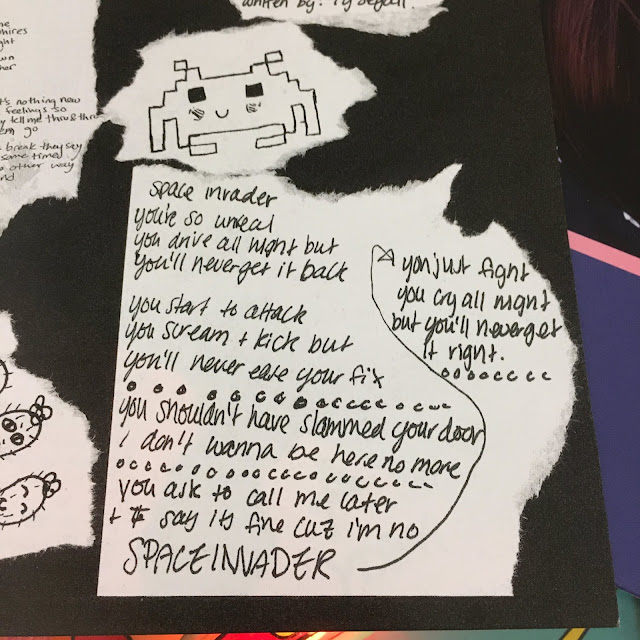 written by: Ty Segall
ne
hires
ght
own
her
t's nothing new
feelings so
y tell me thru & thru
em go
break they say
same time)
other way
nd
space invader
you're so unreal
you drive all night but
you'll never get it back
you start to attack
you scream + kick but
you'll never eate your fix
you shouldn't have slammed your door
i don't wanna be here no more
you ask to call me later
+ I say its fine cuz i'm no
SPACE INVADER
you just fight
you cry all night
but you'll never get
it right.